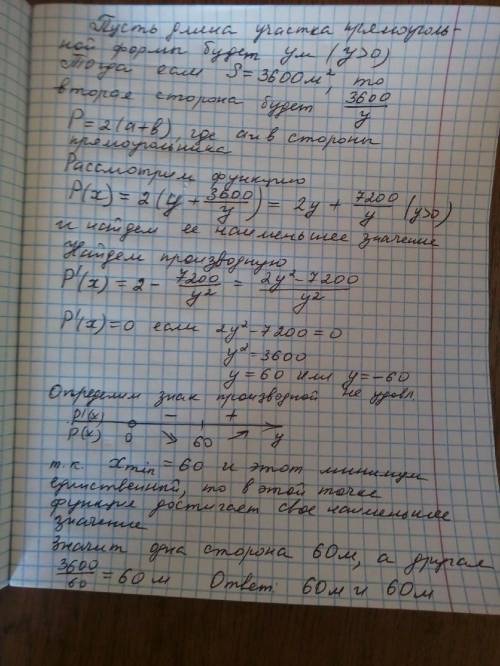 Пусть длина участка прямоуголь-
ной формы будет y м (y>0)
Тогда если S = 3600 м², то
вторая сторона будет 3600/y
P = 2(a+b), где a и в стороны
прямоугольника
Рассмотрим функцию
P(x) = 2(y + 3600/y) = 2y + 7200/y (y>0)
и найдем ее наименьшее значение
Найдем производную
P'(x) = 2 - 7200/y² = (2y²-7200)/y²
P'(x)=0 если 2y²-7200=0
y²=3600
y=60 или y=-60
Определим знак производной не удовл.
P'(x) - +
P(x) 0 ↘ 60 ↗ y
т.к. x min = 60 и этот минимум
единственный, то в этой точке
функция достигает свое наименьшее
значение
Значит одна сторона 60м, а другая
3600/60 = 60 м Ответ: 60м и 60м